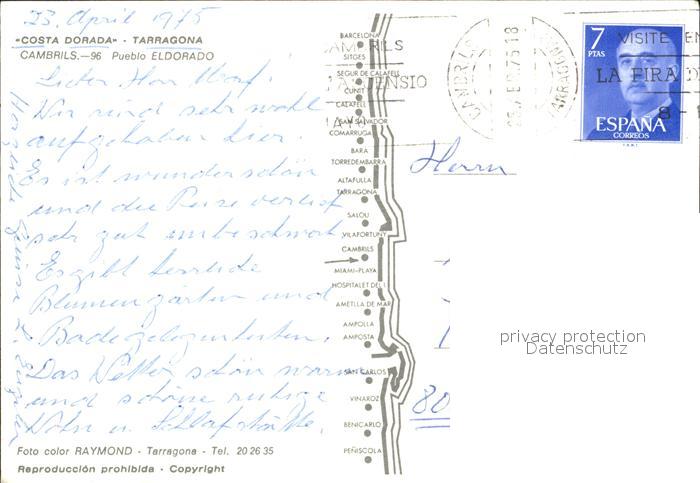 23. April 1975
«COSTA DORADA» - TARRAGONA
CAMBRILS.—96 Pueblo ELDORADO
Lieber Herr
Wir sind sehr wohl
aufgehoben hier.
Es ist wunderschön
und die Reise verlief
sehr gut unbeschwert
Es gibt
Blumengärten und
Badegelegenheiten.
Das Wetter schön warm
und schöne ruhige
Wohn u. Schlafstätte.
Herzliche Grüsse
Foto color RAYMOND - Tarragona - Tel. 20 26 35
Reproducción prohibida - Copyright
BARCELONA
SITGES
SEGUR DE CALAFELL
CUNIT
CALAFELL
SAN SALVADOR
COMARRUGA
BARA
TORREDEMBARRA
ALTAFULLA
TARRAGONA
SALOU
VILAFORTUNY
CAMBRILS
MIAMI-PLAYA
HOSPITALET DEL I.
AMETLLA DE MAR
AMPOLLA
AMPOSTA
SAN CARLOS
VINAROZ
BENICARLO
PEÑISCOLA
VISITE EN
LA FIRA D
7
PTAS
ESPAÑA
CORREOS
Herrn
80
privacy protection
Datenschutz